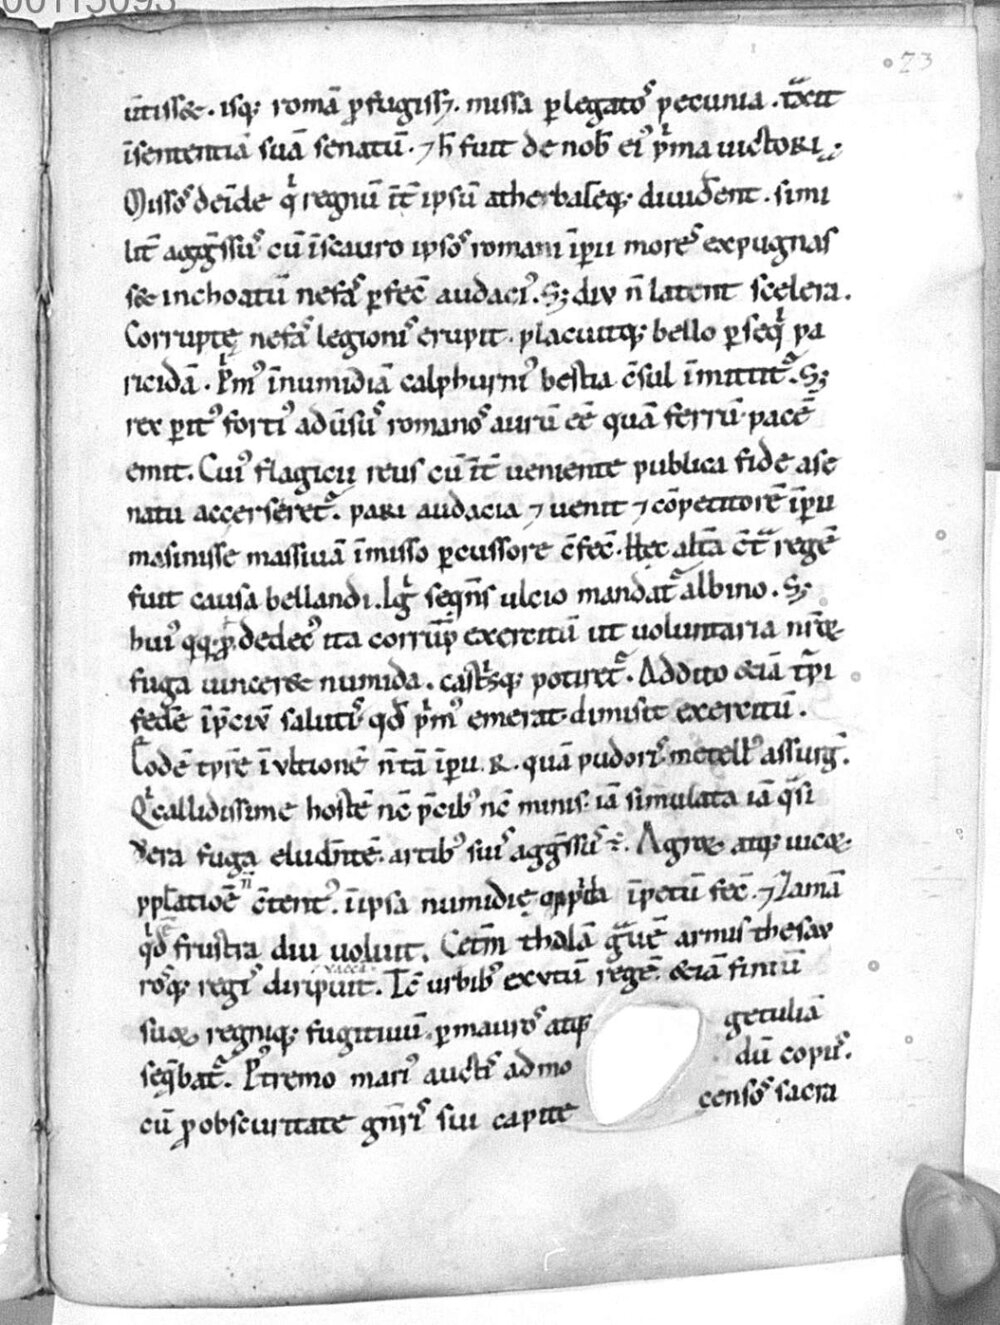 00113093
23
ūtiss&. isq; romā ꝓfugiss&. missa ꝑlegatoˢ pecunia. tͣxit
īsententiā suā senatū. ⁊ h̄ fuit de nob̄ eiꝰ pͥma uictoria;
Missoˢ deīde qͥ regnū īt̄ ipsū atherbaleq; diuid̄ent. simi
lit̄ agḡssuˢ cū īscauro ipsoˢ romani īꝑii moreˢ expugnas
s& inchoatū nefaˢ ꝑfec̄ audaciꝰ. S; diu n̄ latent scelera.
Corruptę nefaˢ legioniˢ erupit. placuitq; bello ꝑseqͥ pa
ricidā. Pͥmꝰ īnumidiā calphurniꝰ bestia c̄sul īmittitᷣ. S;
rex ꝑitꝰ fortiꝰ adūsuˢ romanoˢ aurū ēē quā ferrū pacē
emit. Cuiꝰ flagicii reus cū īt̄ ueniente publica fide ase
natu accerseretᷣ. pari audacia ⁊ uenit ⁊ cōpetitorē īꝑii
masinisse massiuā īmisso ꝑcussore c̄fec̄. Hec alt̄a c̄tͣ regē
fuit causa bellandi. Igͥ seqn̄s ulcio mandatᷣ albino. S;
huiꝰ qq; ꝓdedecꝰ ita corrup̄ exercitū ut uoluntaria nr̄oꝝ
fuga uincer& numida. castͥsq; potiretᷣ. Addito &iā tᷣpi
fedē īp̄ciū salutiˢ qd̄ pͥmꝰ emerat dimisit exercitū.
Eodē tp̄re ī ultionē n̄ tā īꝑii. R. quā pudoriˢ metellꝰ assurḡ.
Qͥ callidissime hostē nc̄ p̄cibꝰ nc̄ minis. iā simulata iā qͣsi
uera fuga eludn̄tē. artibꝰ suiˢ agḡssuˢ ē. Agroꝝ atq; uicoꝝ
pplatiōē n̄ c̄tentꝰ. īipsa numidię oppida īpetū fec̄. ⁊ Zamā
qͥdē frustra diu uoluit. Cet̄m thalā gͣuē armis thesau
roˢq; regiˢ diripuit. Tc̄ urbibꝰ exutū regē. &iā finiū
suoꝝ regniq; fugitiuū. ꝑmauroˢ atq; getuliā
seq̄batᷣ. Pᵒtremo mariꝰ auctiˢ admodū copiiˢ.
cū ꝓobscuritate gn̄riˢ sui capite censoˢ sacra